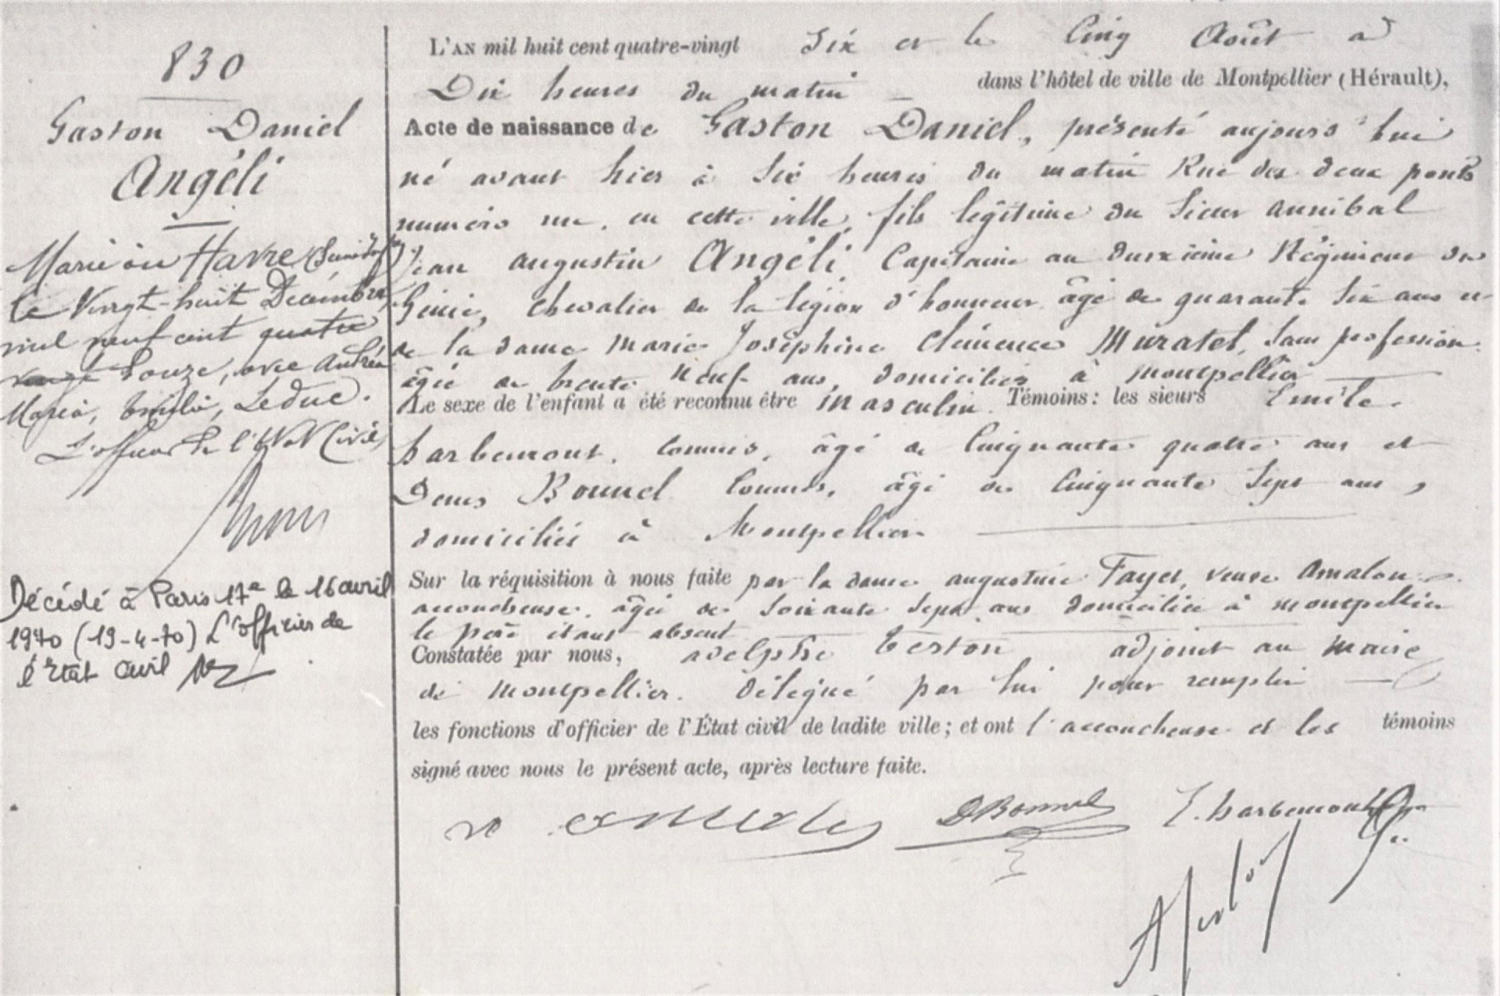 830
Gaston Daniel
Angéli
Marié au Havre (Seine Infre)
le Vingt-huit Décembre
mil neuf cent quatre
vingt douze, avec Andrée
Maria, Leduc.
L'officier de l'Etat Civil,
Décédé à Paris 17e le 16 avril
1970 (19-4-70) L'officier de
l'Etat civil
L'AN mil huit cent quatre-vingt six et le cinq Août à
Dix heures du matin dans l'hôtel de ville de Montpellier (Hérault),
Acte de naissance de Gaston Daniel, présenté aujourd'hui
né avant hier à six heures du matin Rue des deux ponts
numéro un, en cette ville, fils légitime du sieur annibal
Jean augustin Angéli, Capitaine au deuxième Régiment du
Génie, chevalier de la légion d'honneur âgé de quarante six ans et
de la dame marie Joséphine Clémence Muratel, sans profession
âgée de trente neuf ans, domiciliés à montpellier
Le sexe de l'enfant a été reconnu être masculin. Témoins : les sieurs Emile
barbemont, commis, âgé de cinquante quatre ans et
Denis Bonnel commis, âgé de cinquante sept ans,
domiciliés à Montpellier
Sur la réquisition à nous faite par la dame augustine Fayet, veuve Amalou
accoucheuse, âgée de soixante sept ans domiciliée à montpellier
le père étant absent
Constatée par nous, adelphe Teston adjoint au maire
de montpellier. Délégué par lui pour remplir
les fonctions d'officier de l'État civil de ladite ville ; et ont l'accoucheuse et les témoins
signé avec nous le présent acte, après lecture faite.
DBonnel E. barbemont
ATeston